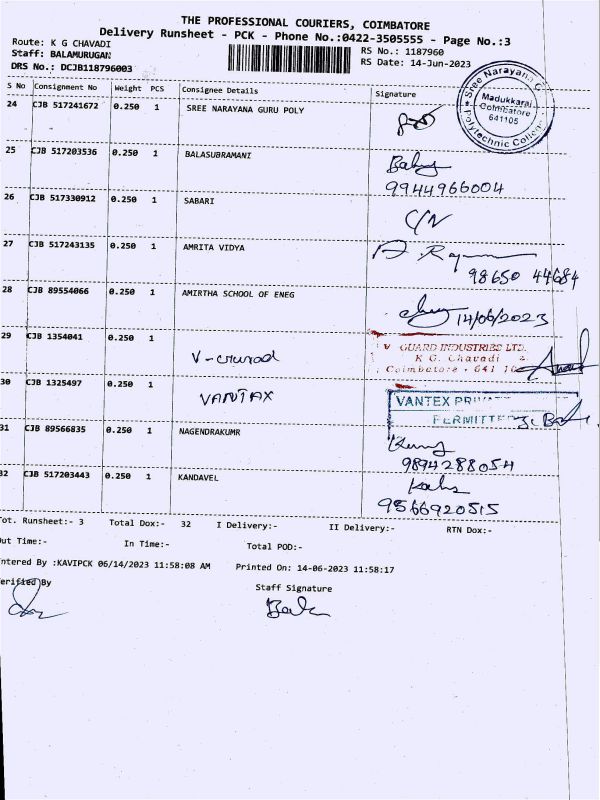 THE PROFESSIONAL COURIERS, COIMBATORE
Delivery Runsheet - PCK - Phone No.:0422-3505555 - Page No.:3
Route: K G CHAVADI
RS No.: 1187960
Staff: BALAMURUGAN
RS Date: 14-Jun-2023
DRS No.: DCJB118796003
S No Consignment No Weight PCS Consignee Details Signature
24 CJB 517241672 0.250 1 SREE NARAYANA GURU POLY
Sree Narayana G
Madukkarai
Coimbatore
641105
Polytechnic College
25 CJB 517203536 0.250 1 BALASUBRAMANI
9944966004
26 CJB 517330912 0.250 1 SABARI
C/N
27 CJB 517243135 0.250 1 AMRITA VIDYA
98650 44684
28 CJB 89554066 0.250 1 AMIRTHA SCHOOL OF ENEG
14/06/2023
29 CJB 1354041 0.250 1
V GUARD INDUSTRIES LTD.
K G. Chavadi
Coimbatore - 641 10
30 CJB 1325497 0.250 1 VANTAX
VANTEX
31 CJB 89566835 0.250 1 NAGENDRAKUMR
9894288054
32 CJB 517203443 0.250 1 KANDAVEL
9566920515
Tot. Runsheet:- 3 Total Dox:- 32 I Delivery:- II Delivery:- RTN Dox:-
Out Time:- In Time:- Total POD:-
ntered By :KAVIPCK 06/14/2023 11:58:08 AM Printed On: 14-06-2023 11:58:17
erified By Staff Signature